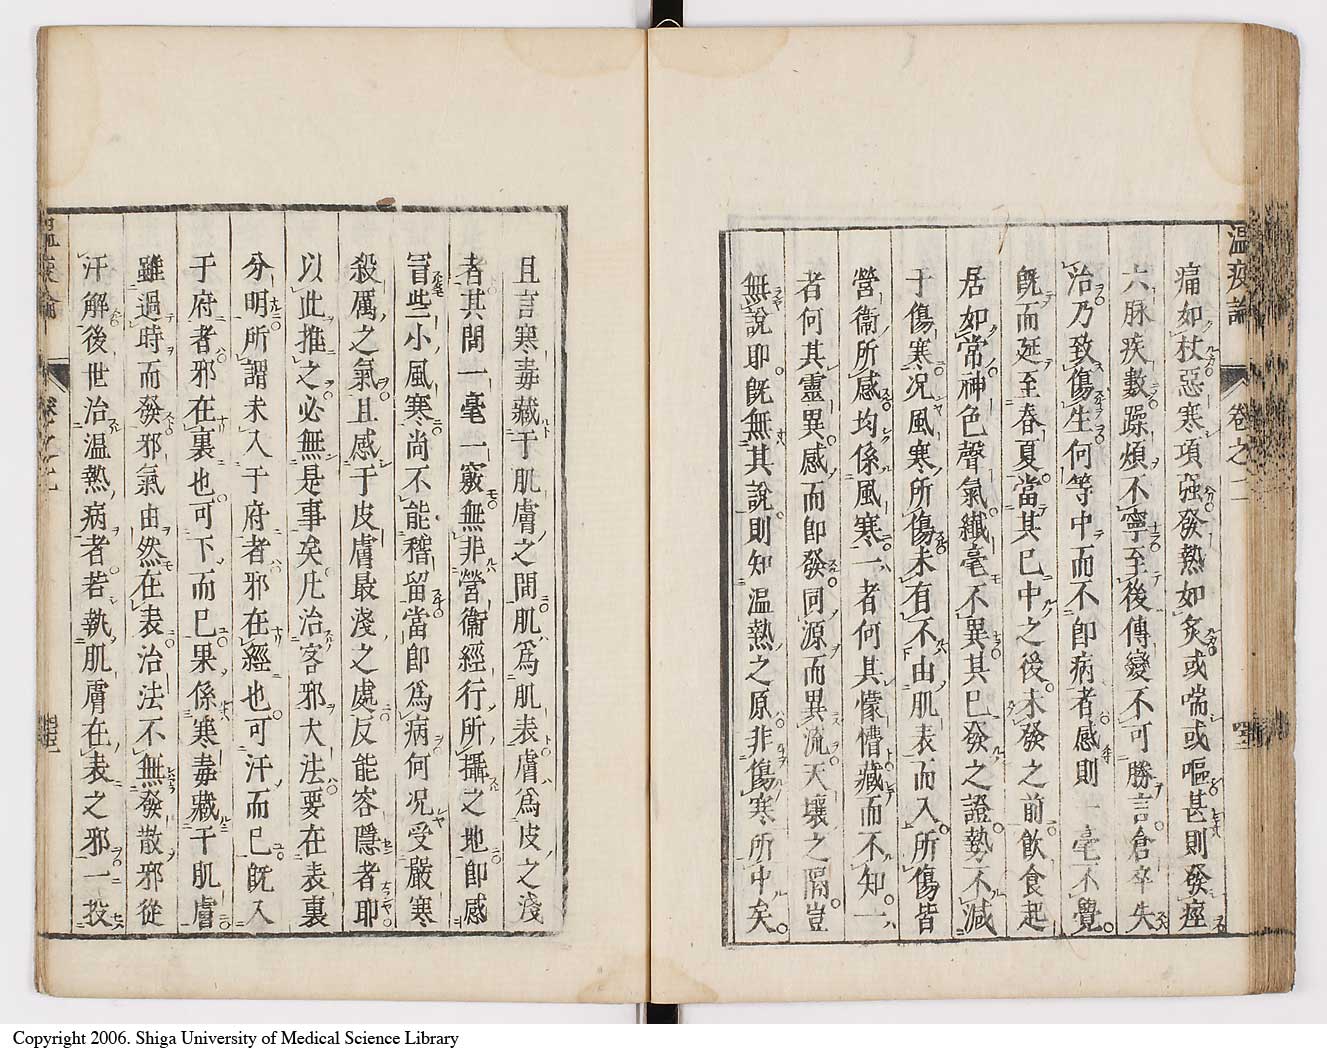 温疫論 卷之二
痛如杖惡寒項强發熱如炙或喘或嘔甚則發痙
六脉疾數躁煩不寧至後傳變不可勝言倉卒失
治乃致傷生何等中而不卽病者感則一毫不覺
旣而延至春夏當其已中之後未發之前飲食起
居如常神色聲氣纖毫不異其已發之證勢不減
于傷寒况風寒所傷未有不由肌表而入所傷皆
營衞所感均係風寒一者何其懞懵藏而不知一
者何其靈異感而卽發同源而異流天壤之隔豈
無說耶旣無其說則知温熱之原非傷寒所中矣
且言寒毒藏于肌膚之間肌爲肌表膚爲皮之淺
者其間一毫一竅無非營衞經行所攝之地卽感
冐些小風寒尚不能稽留當卽爲病何况受嚴寒
殺厲之氣且感于皮膚最淺之處反能容隱者耶
以此推之必無是事矣凡治客邪大法要在表裏
分明所謂未入于府者邪在經也可汗而已旣入
于府者邪在裏也可下而已果係寒毒藏于肌膚
雖過時而發邪氣由然在表治法不無發散邪從
汗解後世治温熱病者若執肌膚在表之邪一投
Copyright 2006. Shiga University of Medical Science Library